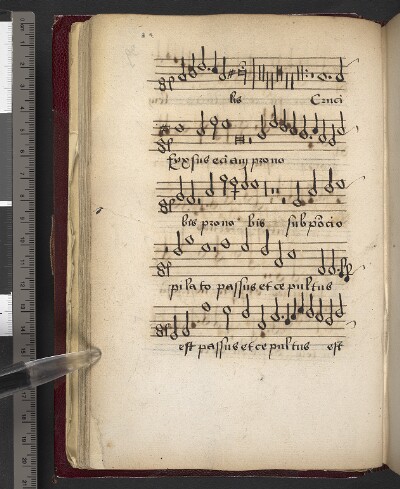 bis Cruci
fixsus eciam prono
bis prono bis sub pocio
pilato passus et ce pultus
est passus et ce pultus est